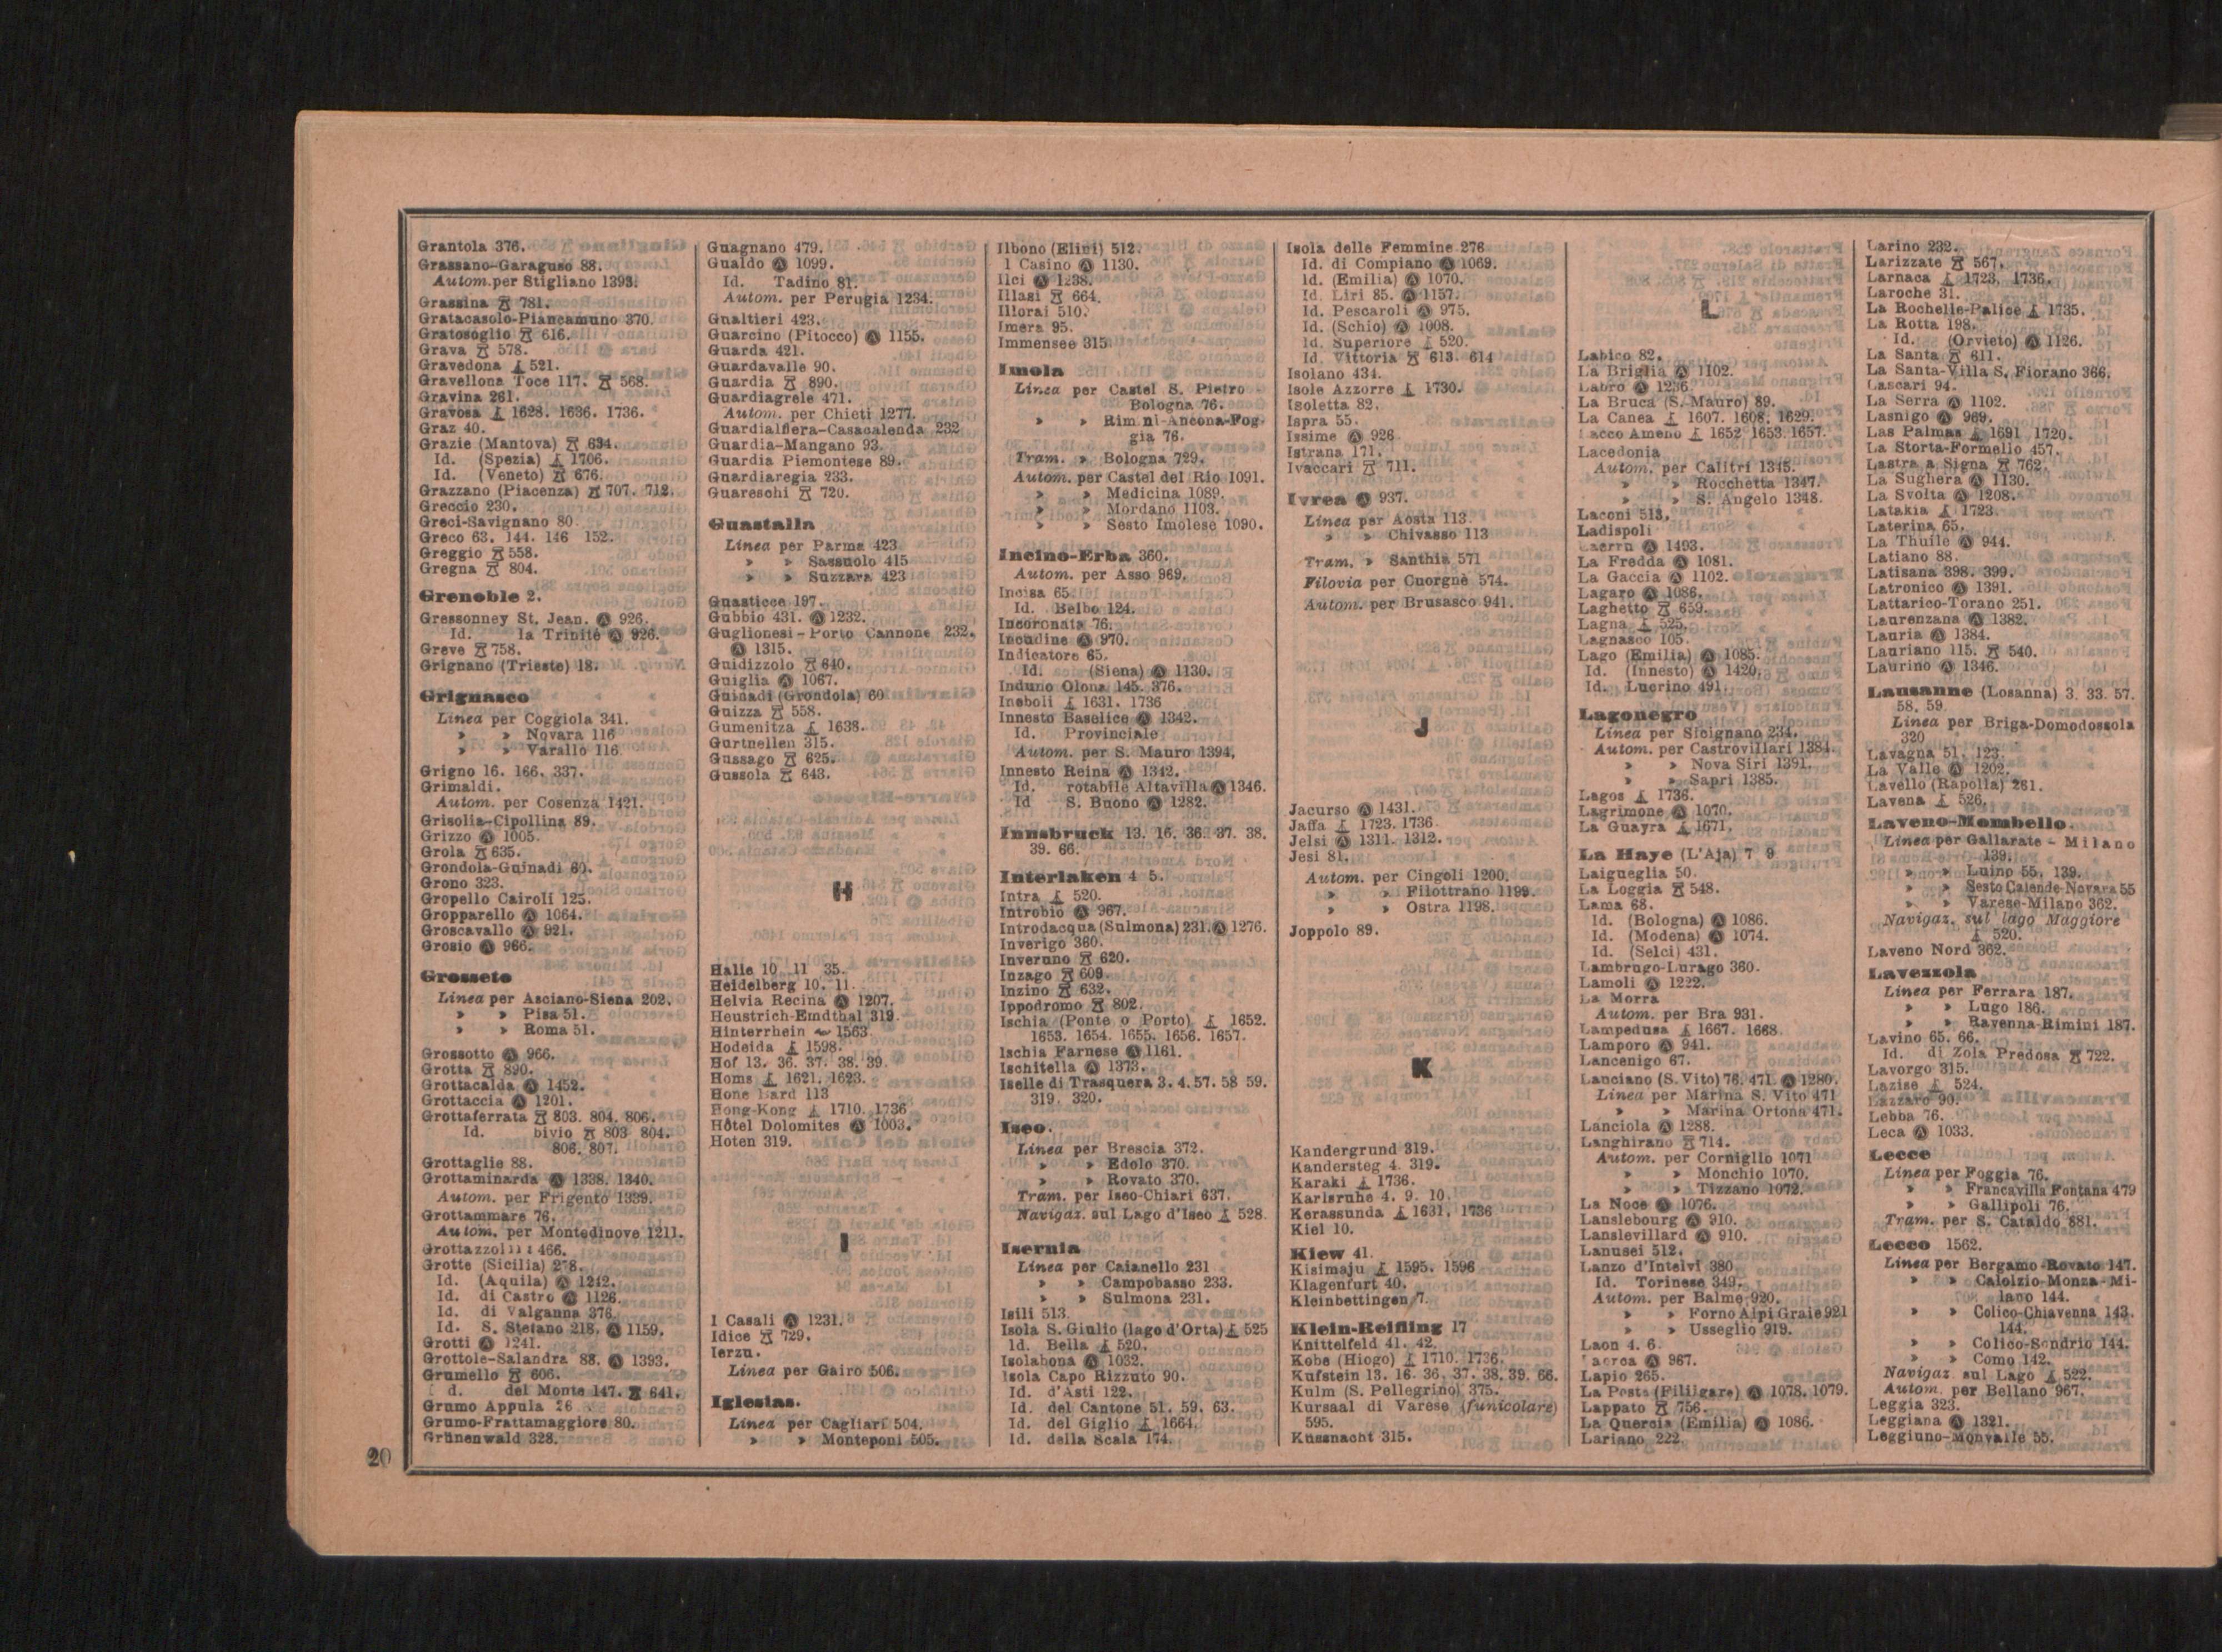 Grantola 376.
Grassano-Garaguso 88.
Autom. per Stigliano 1393.
Grassina 781.
Gratacasolo-Piancamuno 370.
Gratosoglio 616.
Grava 578.
Gravedona 521.
Gravellona Toce 117. 568.
Gravina 261.
Gravosa 1628. 1636. 1736.
Graz 40.
Grazie (Mantova) 634.
Id. (Spezia) 1706.
Id. (Veneto) 676.
Grazzano (Piacenza) 707. 712.
Greccio 230.
Greci-Savignano 80.
Greco 63. 144. 146 152.
Greggio 558.
Gregna 804.
Grenoble 2.
Gressonney St. Jean. Ⓐ 926.
Id. la Trinité Ⓐ 926.
Greve 758.
Grignano (Trieste) 18.
Grignasco
Linea per Coggiola 341.
» » Novara 116
» » Varallo 116
Grigno 16. 166. 337.
Grimaldi.
Autom. per Cosenza 1421.
Grisolia-Cipollina 89.
Grizzo Ⓐ 1005.
Grola 635.
Grondola-Guinadi 60.
Grono 323.
Gropello Cairoli 125.
Gropparello Ⓐ 1064.
Groscavallo Ⓐ 921.
Grosio Ⓐ 966.
Grosseto
Linea per Asciano-Siena 202.
» » Pisa 51.
» » Roma 51.
Grossotto Ⓐ 966.
Grotta 890.
Grottacalda Ⓐ 1452.
Grottaccia Ⓐ 1201.
Grottaferrata 803. 804. 806.
Id. bivio 803 804.
806. 807.
Grottaglie 88.
Grottaminarda Ⓐ 1338. 1340.
Autom. per Frigento 1339.
Grottammare 76.
Autom. per Montedinove 1211.
Grottazzolina 466.
Grotte (Sicilia)
Id. (Aquila) Ⓐ 1242.
Id. di Castro Ⓐ 1126.
Id. di Valganna 376.
Id. S. Stefano 218. Ⓐ 1159.
Grotti Ⓐ 1241.
Grottole-Salandra 88. Ⓐ 1393.
Grumello 606.
Id. del Monte 147. 641.
Grumo Appula 26
Grumo-Frattamaggiore 80.
Grünenwald 328.
Guagnano 479.
Gualdo Ⓐ 1099.
Id. Tadino 81.
Autom. per Perugia 1234.
Gualtieri 423.
Guarcino (Pitocco) Ⓐ 1155.
Guarda 421.
Guardavalle 90.
Guardia 890.
Guardiagrele 471.
Autom. per Chieti 1277.
Guardialfiera-Casacalenda 232
Guardia-Mangano 93.
Guardia Piemontese 89.
Guardiaregia 233.
Guareschi 720.
Guastalla
Linea per Parma 423
» » Sassuolo 415
» » Suzzara 423
Guasticce 197.
Gubbio 431. Ⓐ 1232.
Guglionesi-Porto Cannone 232.
Ⓐ 1315.
Guidizzolo 640.
Guiglia Ⓐ 1067.
Guinadi (Grondola) 60
Guizza 558.
Gumenitza 1638.
Gurtnellen 315.
Gussago 625.
Gussola 643.
H
Halle 10 11 35.
Heidelberg 10. 11.
Helvia Recina Ⓐ 1207.
Heustrich-Emdthal 319.
Hinterrhein 1563
Hodeida 1598.
Hof 13. 36. 37. 38. 39.
Homs 1621. 1623.
Hone Bard 113
Hong-Kong 1710. 1736
Hôtel Dolomites Ⓐ 1003.
Hoten 319.
I
I Casali Ⓐ 1231.
Idice 729.
Ierzu.
Linea per Gairo 506.
Iglesias.
Linea per Cagliari 504.
» » Monteponi 505.
Ilbono (Elini) 512.
I Casino Ⓐ 1130.
Ilci Ⓐ 1238.
Illasi 664.
Illorai 510.
Imera 95.
Immensee 315
Imola
Linea per Castel S. Pietro
Bologna 76.
» » Rimini-Ancona-Foggia 76.
Tram. » Bologna 729.
Autom. per Castel del Rio 1091.
» » Medicina 1089.
» » Mordano 1103.
» » Sesto Imolese 1090.
Incino-Erba 360.
Autom. per Asso 969.
Incisa 65
Id. Belbo 124.
Incoronata 76.
Incudine Ⓐ 970.
Indicatore 65.
Id. (Siena) Ⓐ 1130.
Induno Olona 145. 376.
Ineboli 1631. 1736
Innesto Baselice Ⓐ 1342.
Id. Provinciale
Autom. per S. Mauro 1394.
Innesto Reina Ⓐ 1342.
Id. rotabile Altavilla Ⓐ 1346.
Id S. Buono Ⓐ 1282.
Innsbruck 13. 16. 36. 37. 38.
39. 66.
Interlaken 4 5.
Intra 520.
Introbio Ⓐ 967.
Introdacqua (Sulmona) 231. Ⓐ 1276.
Inverigo 360.
Inveruno 620.
Inzago 609.
Inzino 632.
Ippodromo 802.
Ischia (Ponte o Porto) 1652.
1653. 1654. 1655. 1656. 1657.
Ischia Farnese Ⓐ 1161.
Ischitella Ⓐ 1373.
Iselle di Trasquera 3. 4. 57. 58 59.
319. 320.
Iseo.
Linea per Brescia 372.
» » Edolo 370.
» » Rovato 370.
Tram. per Iseo-Chiari 637.
Navigaz. sul Lago d'Iseo 528.
Isernia
Linea per Caianello 231
» » Campobasso 233.
» » Sulmona 231.
Isili 513.
Isola S. Giulio (lago d'Orta) 525
Id. Bella 520.
Isolabona Ⓐ 1032.
Isola Capo Rizzuto 90.
Id. d'Asti 122.
Id. del Cantone 51. 59. 63.
Id. del Giglio 1664.
Id. della Scala 174.
Isola delle Femmine 276
Id. di Compiano Ⓐ 1069.
Id. (Emilia) Ⓐ 1070.
Id. Liri 85. Ⓐ 1157.
Id. Pescaroli Ⓐ 975.
Id. (Schio) Ⓐ 1008.
Id. Superiore 520.
Id. Vittoria 613. 614
Isolano 434.
Isole Azzorre 1730.
Isoletta 82.
Ispra 55.
Issime Ⓐ 926
Istrana 171.
Ivaccari 711.
Ivrea Ⓐ 937.
Linea per Aosta 113.
» » Chivasso 113
Tram. » Santhià 571
Filovia per Cuorgnè 574.
Autom. per Brusasco 941.
J
Jacurso Ⓐ 1431.
Jaffa 1723. 1736
Jelsi Ⓐ 1311. 1312.
Jesi 81.
Autom. per Cingoli 1200.
» » Filottrano 1199.
» » Ostra 1198.
Joppolo 89.
K
Kandergrund 319.
Kandersteg 4. 319.
Karaki 1736.
Karlsruhe 4. 9. 10.
Kerassunda 1631. 1736
Kiel 10.
Kiew 41.
Kisimaju 1595. 1596
Klagenfurt 40.
Kleinbettingen 7.
Klein-Reifling 17
Knittelfeld 41. 42.
Kobe (Hiogo) 1710. 1736.
Kufstein 13. 16. 36. 37. 38. 39. 66.
Kulm (S. Pellegrino) 375.
Kursaal di Varese (funicolare)
595.
Küssnacht 315.
L
Labico 82.
La Briglia Ⓐ 1102.
Labro Ⓐ 1236
La Bruca (S. Mauro) 89.
La Canea 1607. 1608. 1629.
Lacco Ameno 1652 1653. 1657.
Lacedonia
Autom. per Calitri 1345.
» » Rocchetta 1347.
» » S. Angelo 1348.
Laconi 513.
Ladispoli
Ⓐ 1493.
La Fredda Ⓐ 1081.
La Gaccia Ⓐ 1102.
Lagaro Ⓐ 1086.
Laghetto 659.
Lagna 525.
Lagnasco 105.
Lago (Emilia) Ⓐ 1085.
Id. (Innesto) Ⓐ 1420.
Id. Lucrino 491.
Lagonegro
Linea per Sicignano 234.
Autom. per Castrovillari 1384.
» » Nova Siri 1391.
» » Sapri 1385.
Lagos 1736.
Lagrimone Ⓐ 1070.
La Guayra 1671.
La Haye (L'Aja) 7 9
Laigueglia 50.
La Loggia 548.
Lama 68.
Id. (Bologna) Ⓐ 1086.
Id. (Modena) Ⓐ 1074.
Id. (Selci) 431.
Lambrugo-Lurago 360.
Lamoli Ⓐ 1222.
La Morra
Autom. per Bra 931.
Lampedusa 1667. 1668
Lamporo Ⓐ 941.
Lancenigo 67.
Lanciano (S. Vito) 76. 471. Ⓐ 1280.
Linea per Marina S. Vito 471
» » Marina Ortona 471.
Lanciola Ⓐ 1288.
Langhirano 714.
Autom. per Corniglio 1071
» » Monchio 1070.
» » Tizzano 1072.
La Noce Ⓐ 1076.
Lanslebourg Ⓐ 910.
Lanslevillard Ⓐ 910.
Lanusei 512.
Lanzo d'Intelvi 380
Id. Torinese 349.
Autom. per Balme 920.
» » Forno Alpi Graie 921
» » Usseglio 919.
Laon 4. 6.
Ⓐ 967.
Lapio 265.
La Posta (Filigare) Ⓐ 1078. 1079.
Lappato 756.
La Quercia (Emilia) Ⓐ 1086.
Lariano 222
Larino 232.
Larizzate 567.
Larnaca 1723. 1736.
Laroche 31.
La Rochelle-Palice 1735.
La Rotta 198.
Id. (Orvieto) Ⓐ 1126.
La Santa 611.
La Santa-Villa S. Fiorano 366.
Lascari 94.
La Serra Ⓐ 1102.
Lasnigo Ⓐ 969.
Las Palmas 1691 1720.
La Storta-Formello 457.
Lastra a Signa 762.
La Sughera Ⓐ 1130.
La Svolta Ⓐ 1208.
Latakia 1723
Laterina 65.
La Thuile Ⓐ 944.
Latiano 88.
Latisana 398. 399.
Latronico Ⓐ 1391.
Lattarico-Torano 251.
Laurenzana Ⓐ 1382.
Lauria Ⓐ 1384.
Lauriano 115. 540.
Laurino Ⓐ 1346.
Lausanne (Losanna) 3. 33. 57.
58. 59
Linea per Briga-Domodossola
320
Lavagna 51. 123.
La Valle Ⓐ 1202.
Lavello (Rapolla) 261.
Lavena 526.
Laveno-Mombello.
Linea per Gallarate - Milano
139.
» » Luino 55. 139.
» » Sesto Calende-Novara 55
» » Varese-Milano 362.
Navigaz. sul lago Maggiore
520.
Laveno Nord 362.
Lavezzola
Linea per Ferrara 187.
» » Lugo 186.
» » Ravenna-Rimini 187.
Lavino 65. 66.
Id. di Zola Predosa 722.
Lavorgo 315.
Lazise 524.
Lazzaro 90.
Lebba 76.
Leca Ⓐ 1033.
Lecce
Linea per Foggia 76.
» » Francavilla Fontana 479
» » Gallipoli 76.
Tram. per S. Cataldo 881.
Lecco 1562.
Linea per Bergamo-Rovato 147.
» » Calolzio-Monza-Milano 144.
» » Colico-Chiavenna 143.
144.
» » Colico-Sondrio 144.
» » Como 142.
Navigaz. sul Lago 522.
Autom. per Bellano 967.
Leggia 323.
Leggiana Ⓐ 1321.
Leggiuno-Monvalle 55.
20